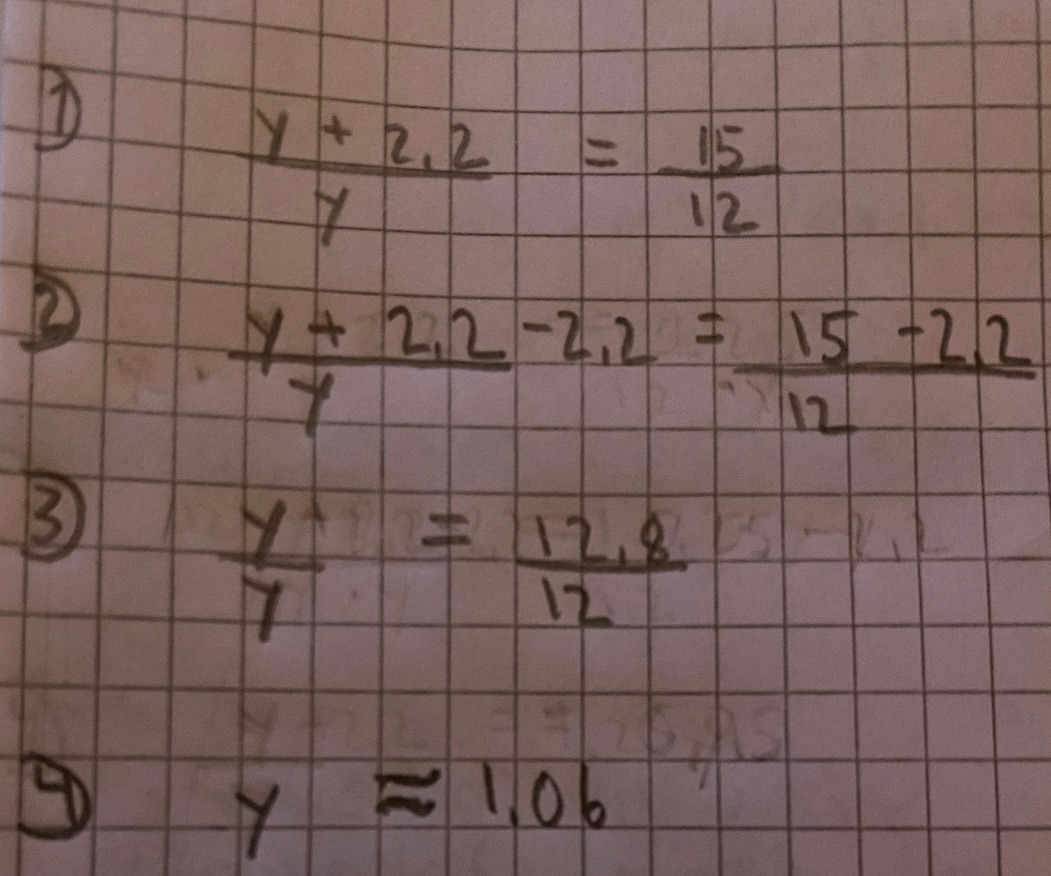 ① y + 2,2 / y = 15 / 12
② y + 2,2 / y -2,2 = 15 -2,2 / 12
③ y / y = 12,8 / 12
④ y ≈ 1,06